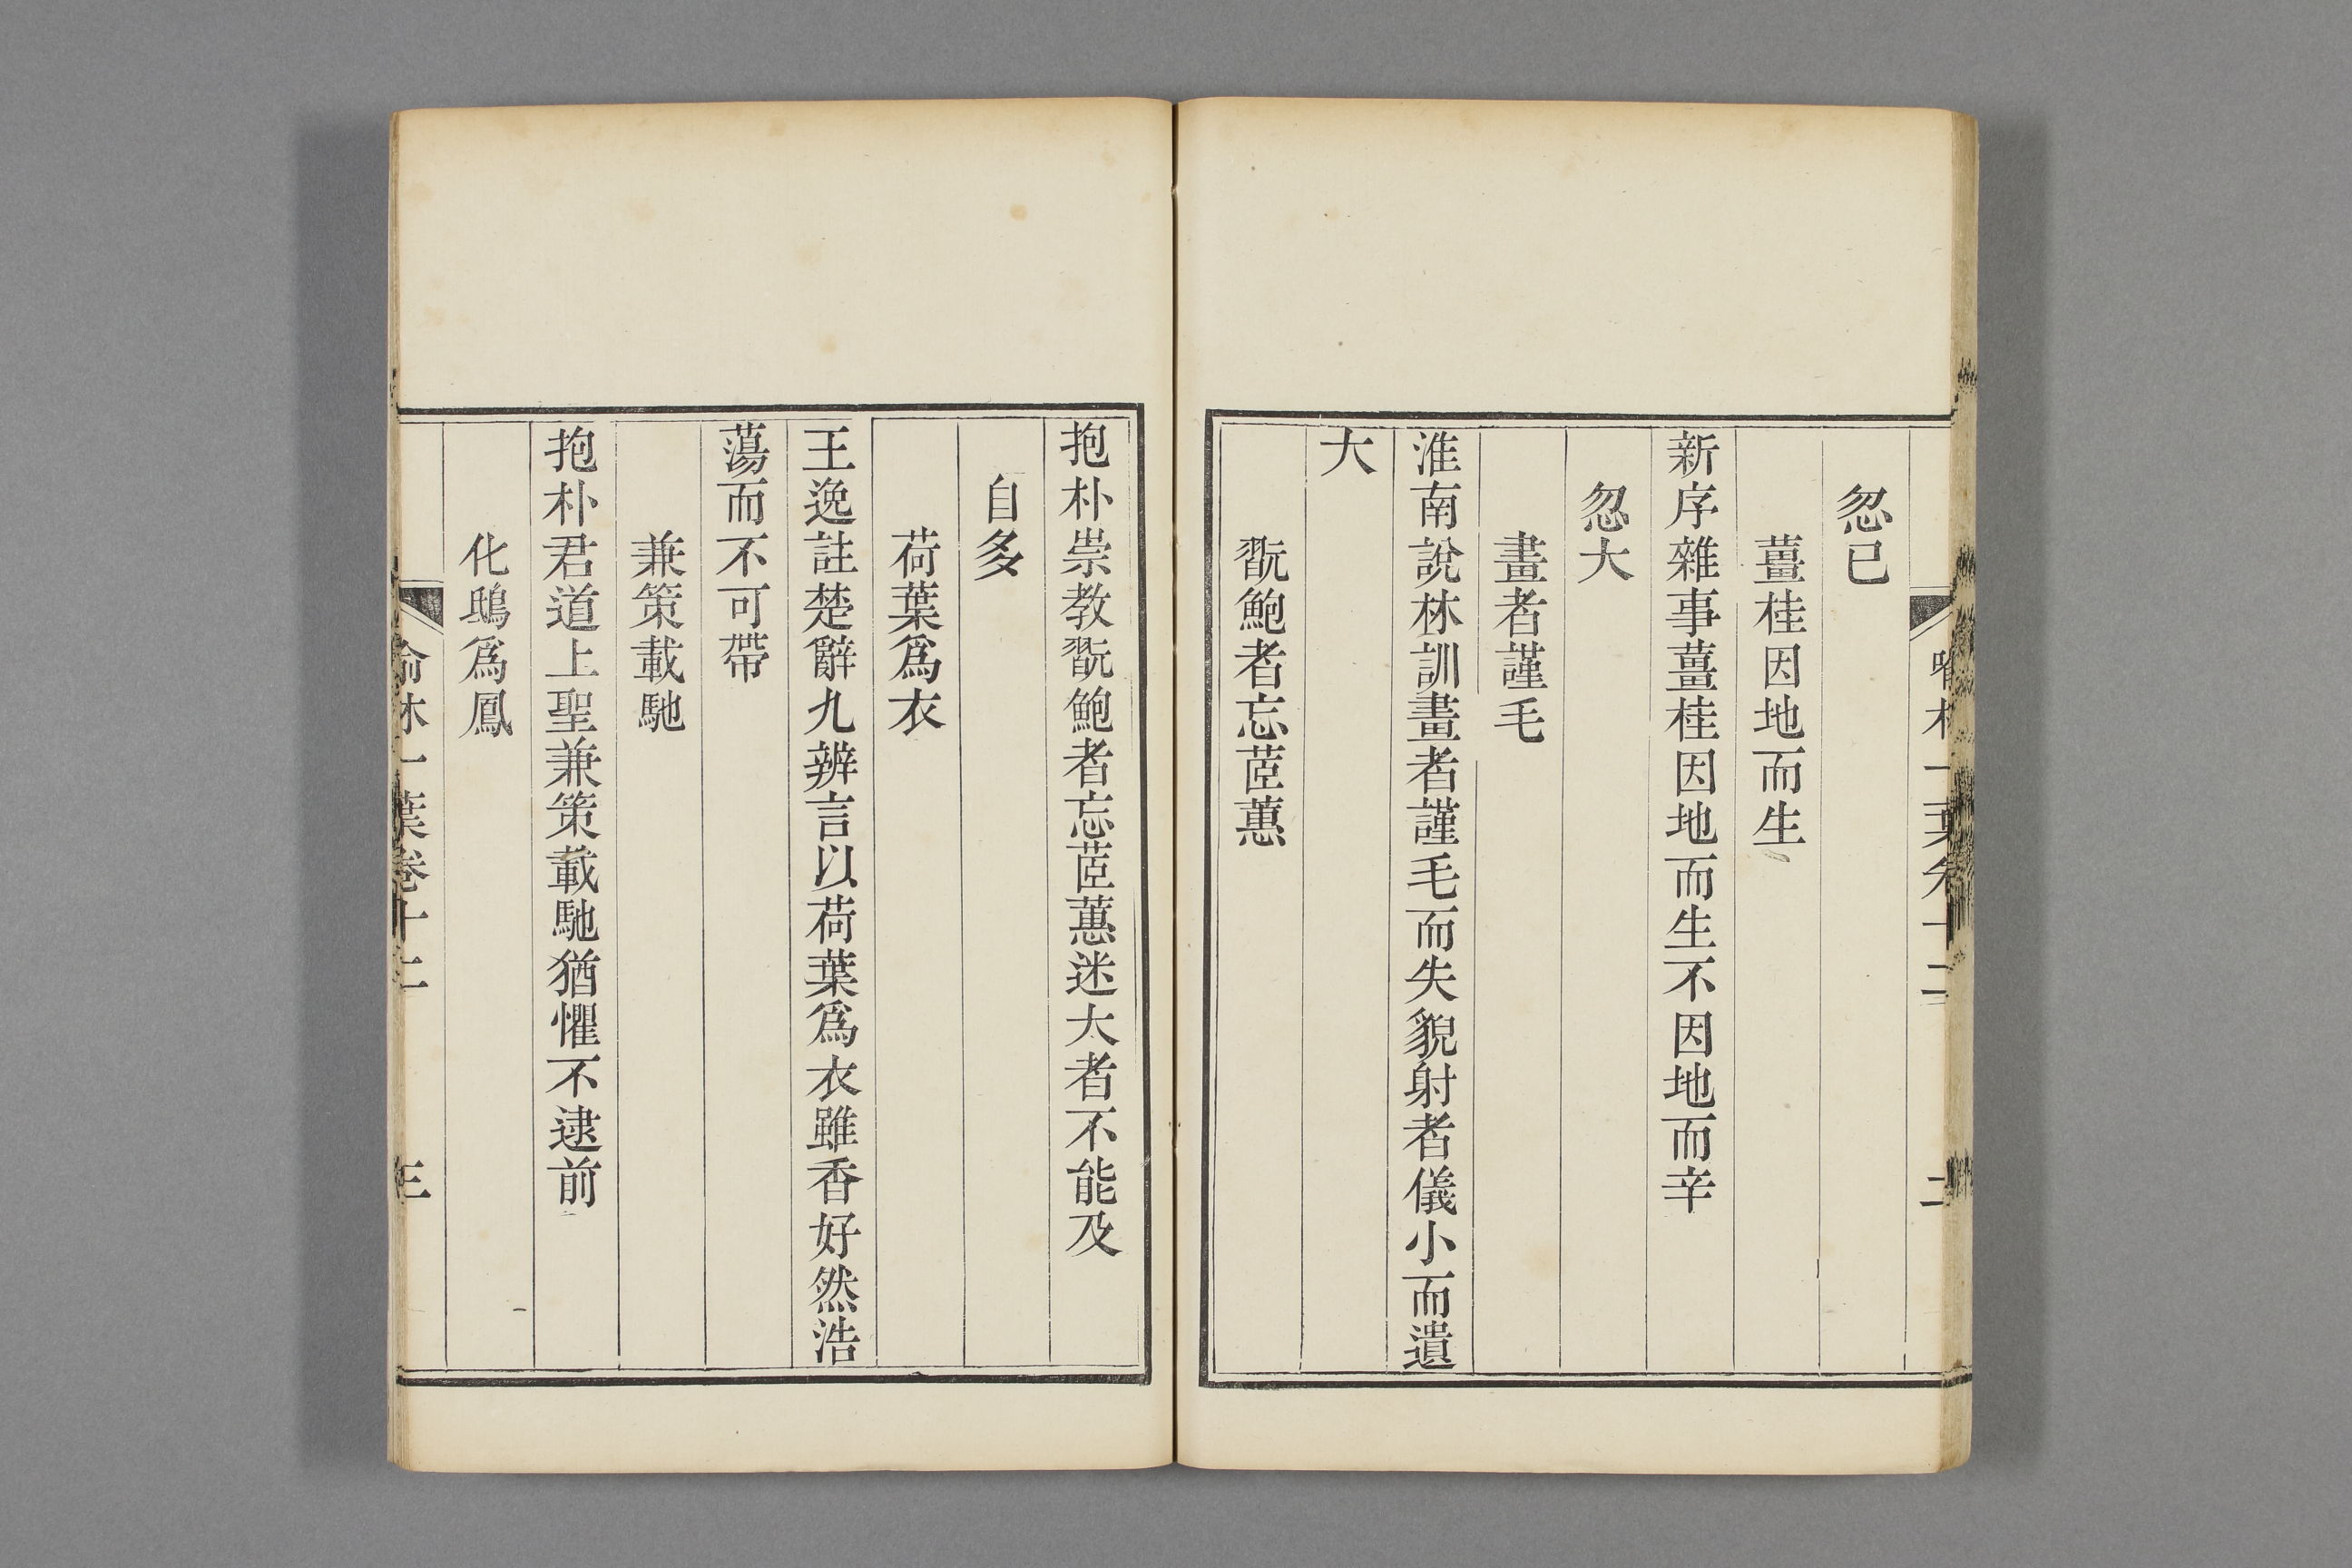 忽已
薑桂因地而生
新序雜事薑桂因地而生不因地而辛
忽大
畫者謹毛
淮南說林訓畫者謹毛而失貌射者儀小而遺
大
翫鮑者忘茝蕙
抱朴崇教翫鮑者忘茝蕙迷大者不能及
自多
荷葉爲衣
王逸註楚辭九辨言以荷葉爲衣雖香好然浩
蕩而不可帶
兼策載馳
抱朴君道上聖兼策載馳猶懼不逮前
化鴟爲鳳
喻林一葉卷十二
三